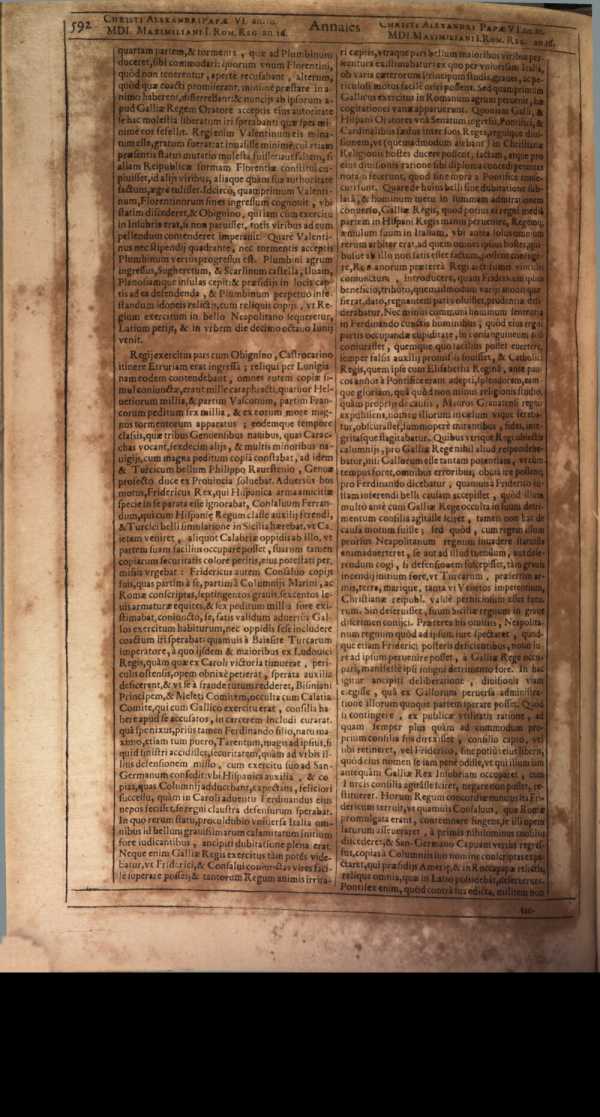 592 CHRISTI ALEXANDRI PAPÆ VI. an. 10.
MDI. MAXIMILIANI I. ROM. REG. an. 16.
Annales
CHRISTI ALEXANDRI PAPÆ VI. an. 10.
MDI. MAXIMILIANI I. ROM. REG. an. 16.
quartam partem, & tormenta, quæ ad Plumbinum
duceret, sibi commodari: quorum vnum Florentini,
quòd non tenerentur, apertè recusabant, alterum,
quòd quæ coacti promiserant, minimè præstare in a-
nimo haberent, differebant: & nuncijs ab ipsorum a-
pud Galliæ Regem Oratore acceptis eius autoritate
se hac molestia liberatum iri sperabant: quæ spes mi-
nimè eos fefellit. Regi enim Valentinum eis mina-
tum esse, gratum fuerat: at inuasisse minimè, cui etiam
præsentis status mutatio molesta fuisset: aut saltem, si
aliam Reipublicæ formam Florentiæ constitui cu-
piuisset, id alijs viribus, aliaque quàm sua authoritate
factum, ægrè tulisset. Idcirco, quamprimum Valenti-
num, Florentinorum fines ingressum cognouit, vbi
statim discederet, & Obignino, qui iam cum exercitu
in Insubria erat, is non paruisset, totis viribus ad eum
pellendum contenderet imperauit. Quare Valenti-
nus nec stipendij quadrante, nec tormentis acceptis
Plumbinum versus progressus est. Plumbini agrum
ingressus, Sugheretum, & Scarlinum castella, Iluam,
Planosiamque insulas cepit: & præsidijs in locis cap-
tis ad ea defendenda, & Plumbinum perpetuo infe-
standum idoneis relictis, cum reliquis copijs, vt Re-
gium exercitum in bello Neapolitano sequeretur,
Latium petijt, & in vrbem die decimo octauo Iunij
venit.
Regij exercitus pars cum Obignino, Castrocarino
itinere Etruriam erat ingressa; reliqui per Lunigia-
nam eodem contendebant, omnes autem copiæ si-
mul coniunctæ, erant mille cataphracti, quatuor Hel-
uetiorum millia, & partim Vasconum, partim Fran-
corum peditum sex millia, & ex eorum more mag-
nus tormentorum apparatus; eodemque tempore
classis, quæ tribus Genuensibus nauibus, quas Carac-
chas vocant, sexdecim alijs, & multis minoribus na-
uigijs, cum magna peditum copia constabat, ad idem
& Turcicum bellum Philippo Rauestenio, Genuæ
profecto duce ex Prouincia soluebat. Aduersus hos
motus, Fridericus Rex, qui Hispanica arma amicitiæ
specie in se parata esse ignorabat, Consaluum Ferran-
dum, qui cum Hispaniæ Regum classe auxilij ferendi,
& Turcici belli simulatione in Sicilia hærebat, vt Ca-
ietam veniret, aliquot Calabriæ oppidis ab illo, vt
partem suam facilius occupare posset, suarum tamen
copiarum securitatis colore petitis, eius potestati per-
missis vrgebat: Fridericus autem Consaluo copijs
suis, quas partim à se, partim à Columnijs Marini, ac
Romæ conscriptas, septingentos grauis, sexcentos le-
uis armaturæ equites, & sex peditum millia fore exi-
stimabat, coniuncto, se, satis validum aduersus Gal-
los exercitum habiturum, nec oppidis sese includere
coactum iri sperabat: quamuis à Baisite Turcarum
imperatore, à quo ijsdem & maioribus ex Ludouici
Regis, quàm quæ ex Caroli victoria timuerat, peri-
culis ostensis, opem obnixè petierat, sperata auxilia
deficerent, & vt se à fraude tutum redderet, Bisiniani
Principem, & Meleti Comitem, occulta cum Calatiæ
Comite, qui cum Gallico exercitu erat, consilia ha-
bere apud se accusatos, in carcerem includi curarat.
quâ spe nixus, prius tamen Ferdinando filio, natu ma-
ximo, etiam tum puero, Tarentum, magis ad ipsius, si
quid sinistri accidisset, securitatem, quàm ad vrbis il-
lius defensionem misso, cum exercitu suo ad San-
Germanum consedit: vbi Hispanica auxilia, & co-
pias, quas Columnij adducebant, expectans, feliciori
successu, quàm in Caroli aduentu Ferdinandus eius
nepos fecisset, se regni claustra defensurum sperabat.
In quo rerum statu, procul dubio vniuersa Italia om-
nibus id bellum grauissimarum calamitatum initium
fore iudicantibus, ancipiti dubitatione plena erat.
Neque enim Galliæ Regis exercitus tàm potēs vide-
batur, vt Friderici, & Consalui coniunctas vires faci-
lè superare posset; & tantorum Regum animis irrita-
ri cœptis, vtraque pars bellum maioribus viribus per-
sentura existimabatur: ex quo per vniuersam Italiam,
ob varia cæterorum Principum studia, graues, ac pe-
riculosi motus facilè oriri possent. Sed quamprimum
Gallicus exercitus in Romanum agrum peruenit, hæ
cogitationes vanæ apparuerunt. Quoniam Galli, &
Hispani Oratores vnà Senatum ingressi, Pontifici, &
Cardinalibus fœdus inter suos Reges, regnique diui-
sionem, vt (quemadmodum aiebant) in Christianæ
Religionis hostes ducere possent, factam, atque pro
eius diuisionis ratione sibi diploma concedi petentes
nota fecerunt, quod sine mora à Pontifice conse-
cuti sunt. Quare de huius belli fine dubitatione sub-
lata, & hominum metu in summam admirationem
conuerso, Galliæ Regis, quòd potius ei regni mediā
partem in Hispani Regis manu peruenire, Regemq;
æmulum suum in Italiam, vbi antea solus omnium
rerum arbiter erat, ad quem omnes ipsius hostes, qui-
busue ab illo non satis esset factum, possent confuge-
re, Romanorum præterea Regi arctissimo vinculo
coniunctum, introducere, quàm Fridericum ipsius
beneficio, tributo, quemadmodum varijs modis quæ-
sierat, dato, regnantem pati voluisset, prudentia desi-
derabatur. Nec minùs communi hominum sententia
in Ferdinando cunctis hominibus, quòd eius regni
partis occupandæ cupiditate, in consanguineum suū
coniurasset, quemque, quo facilius posset euertere,
semper falsis auxilij promissis fouisset, & Catholici
Regis, quem ipse cum Elisabetha Regina, ante pau-
cos annos à Pontifice erant adepti, splendorem, eam-
que gloriam, quâ quòd non minus religionis studio,
quàm proprijs de causis, Mauros Granatensi regno
expulissent, nomen illorum in cœlum vsque fereba-
tur, obscurasset, summopere mirantibus, fides, inte-
gritasque flagitabatur. Quibus vtrique Regi obiectis
calumnijs, pro Galliæ Rege nihil aliud respondeba-
tur, nisi Gallorum esse tantam potentiam, vt cum
tempus foret, omnibus erroribus, obuiā ire possent;
pro Ferdinando dicebatur, quamuis à Friderico iu-
stam inferendi belli causam accepisset, quòd illum
multo antè cum Galliæ Rege occulta in suum detri-
mentum consilia agitasse sciret, tamen non hac de
causa motum fuisse; sed quòd, cum regem illum
prorsus Neapolitanum regnum inuadere statuisse
animaduerteret, se aut ad illud tuendum, aut dese-
rendum cogi, si defensionem suscepisset, tàm grauis
incendij initium fore, vt Turcarum, præsertim ar-
mis, terra, marique, tanta vi Venetos impetentium,
Christianæ reipubl. valdè perniciosum esset futu-
rum. Sin deseruisset, suum Siciliæ regnum in graue
discrimen conijci. Præterea his omissis, Neapolita-
num regnum quòd ad ipsum iure spectaret, quod-
que etiam Friderici posteris deficientibus, nouo iu-
re ad ipsum perueniret posset, à Galliæ Rege occu-
pari, manifestè ipsi insigni detrimento fore. In hac
igitur ancipiti deliberatione, diuisionis viam
elegisse, quâ ex Gallorum peruersa administra-
tione illorum quoque partem sperare posset. Quod
si contingere, ex publicæ vtilitatis ratione, ad
quam semper plus quàm ad commodum pro-
prium consilia sua direxisset, consilio capto, vel
sibi retineret, vel Friderico, siue potiùs eius liberis,
quòd eius nomen se iam penè odisse, vt qui illum iam
antequam Galliæ Rex Insubriam occuparet, cum
Turcis consilia agitasse sciret, negare non posset, re-
stitueret. Horum Regum concordiæ nuncius ita Fri-
dericum terruit, vt quamuis Consaluus, quæ Romæ
promulgata erant, contemnere fingens, se illi opem
laturum asseueraret, à primis nihilominus consilijs
discederet, & San-Germano Capuam versus regres-
sus, copias à Columnijs suo nomine conscriptas expe-
ctaret, qui præsidijs Ameriæ, & in Roccapapæ relictis,
reliqua omnia, quæ in Latio possidebāt, deseruerunt.
Pontifex enim, quòd contra sua edicta, militem non